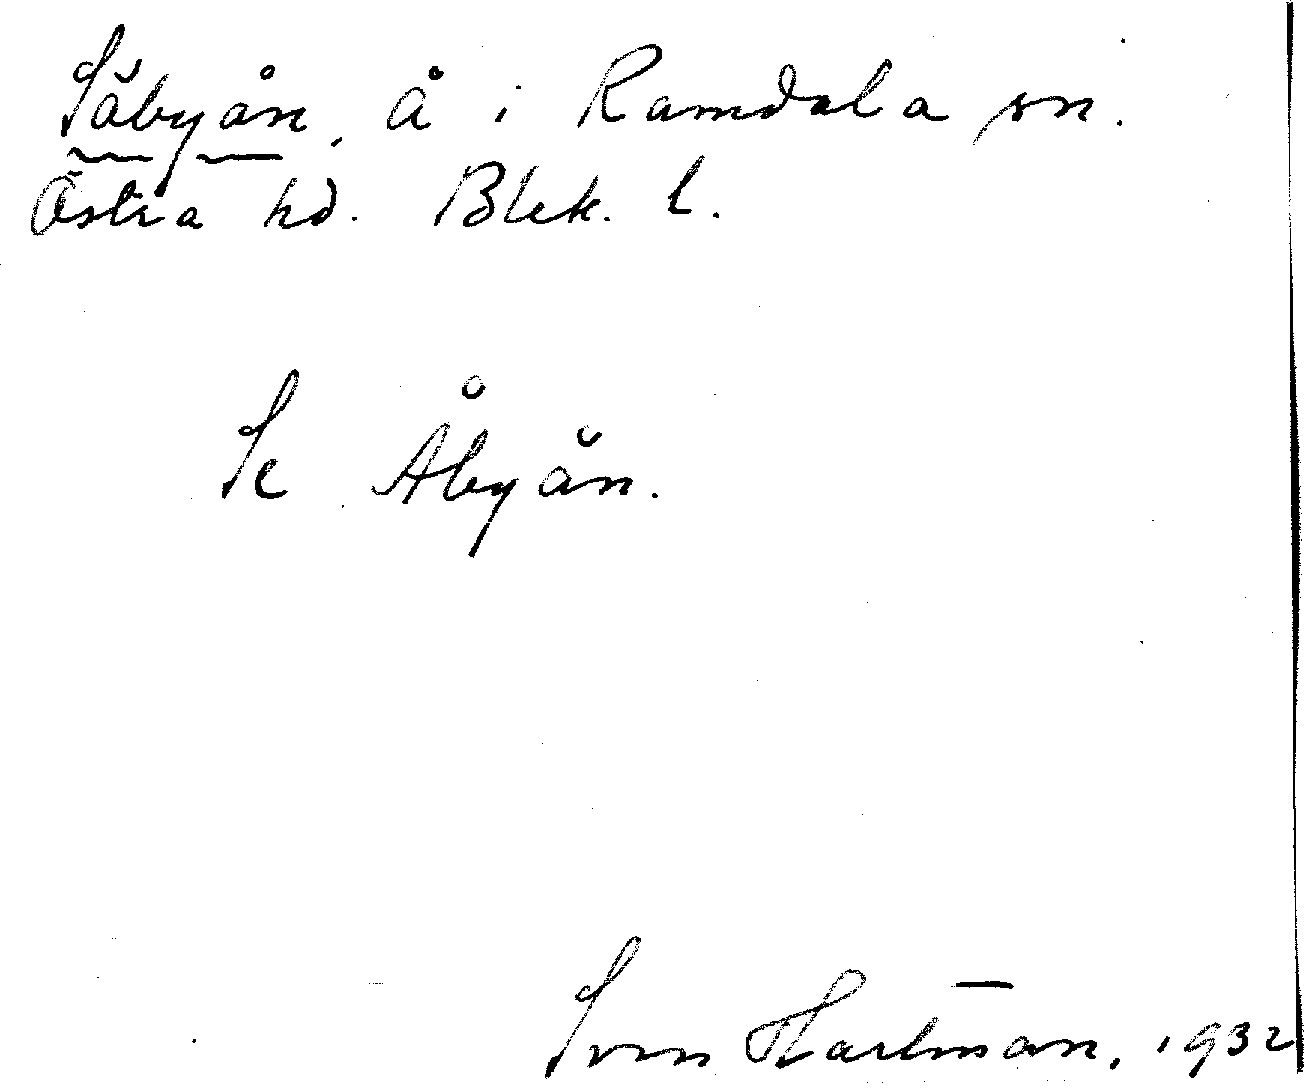 Såbyån, å i Ramdala sn.
Östra hd. Blek. l.
Se Åbyån.
Sven Hartman, 1932